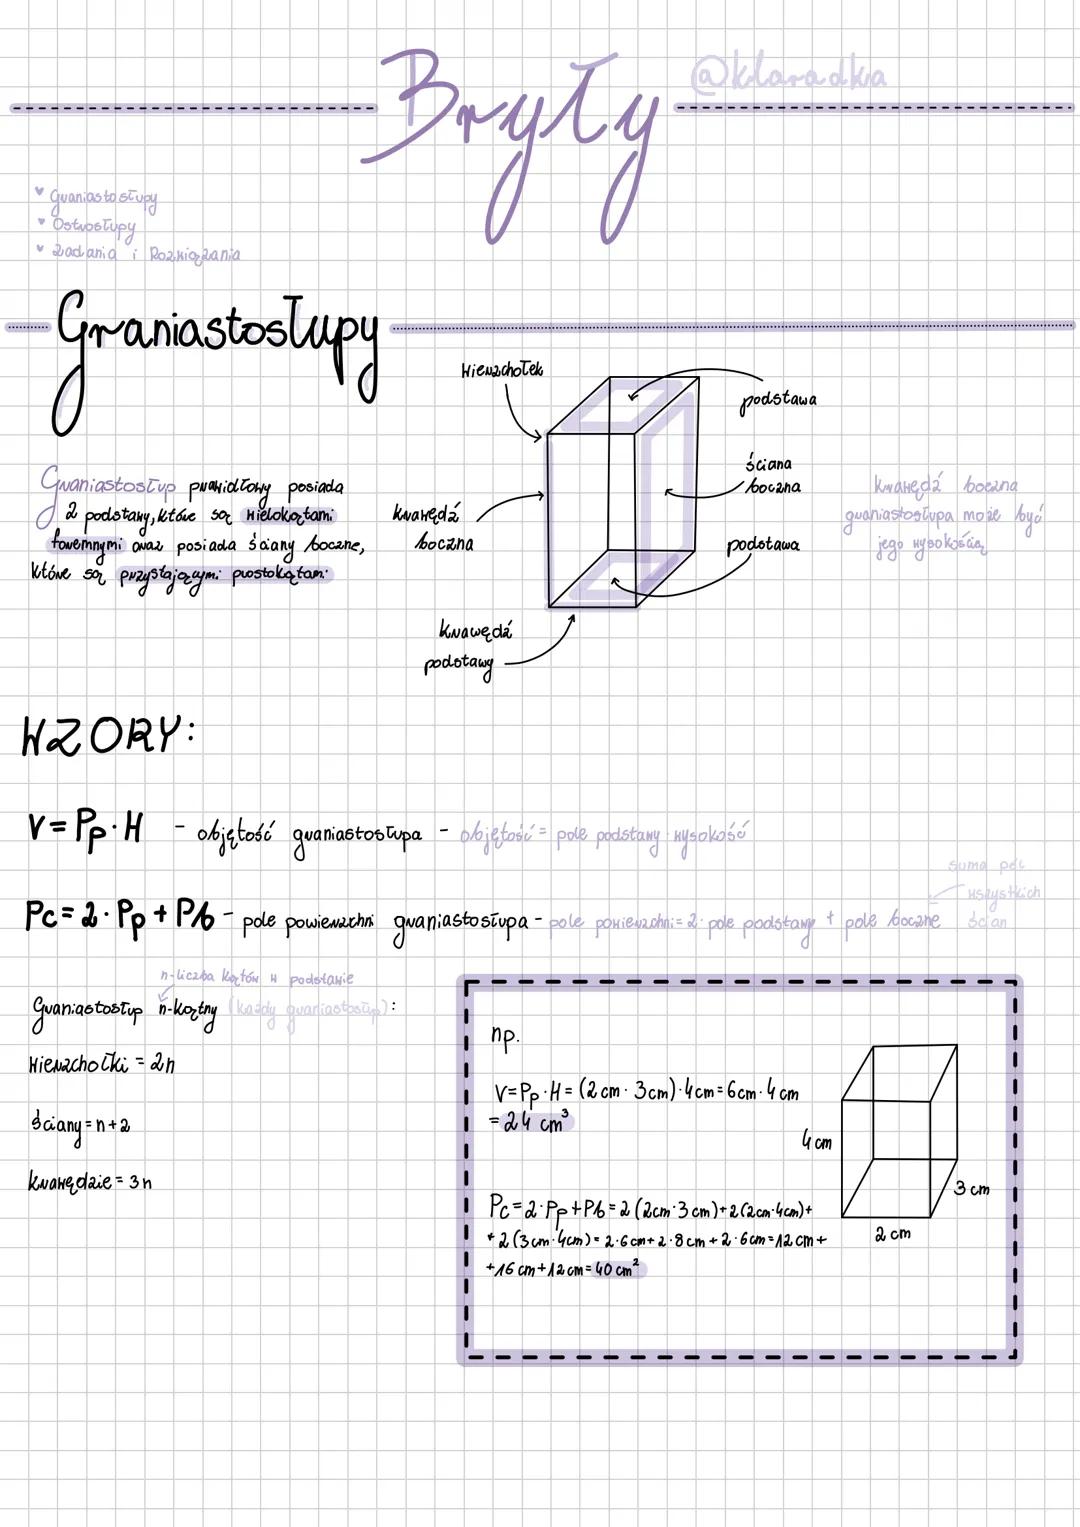 Bryły
@klaradka
Graniastosłupy
Ostrosłupy
Zadania i Rozwiązania
Graniastosłupy
Graniastosłup prawidłowy posiada
2 podstawy, które są wielokątami
foremnymi oraz posiada ściany boczne,
które są przystającymi prostokątami
Wierzchołek
podstawa
ściana
boczna
Krawędź
boczna
podstawa
Krawędź
podstawy
Krawędź boczna
graniastosłupa może być
jego wysokością
WZORY:
V = Pp · H - objętość graniastosłupa - objętość = pole podstawy · wysokość
suma pól
wszystkich
ścian
Pc = 2 · Pp + Pb - pole powierzchni graniastosłupa - pole powierzchni = 2 · pole podstawy + pole boczne
n-liczba kątów w podstawie
Graniastosłup n-kątny (każdy graniastosłup):
Wierzchołki = 2n
ściany = n+2
krawędzie = 3n
np.
V=Pp·H = (2 cm · 3cm)·4cm=6cm·4 cm
= 24 cm³
4 cm
3 cm
2 cm
Pc=2·Pp+Pb=2(2cm·3cm)+2(2cm·4cm)+
+2(3cm·4cm)=2·6cm+2·8cm+2·6cm=12cm+
+16cm+12cm=40cm²